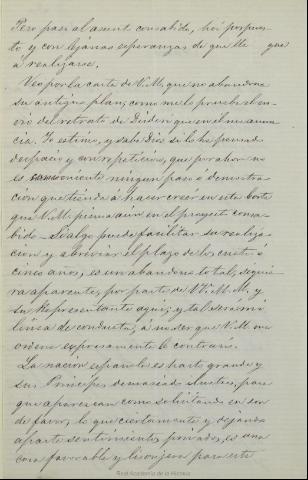 Pero pasó al asunto consabido, hoy pospues-
to, y con lejanas esperanzas de que llegue
á realizarse.
Veo por la carta de V.M. que no abandona
su antiguo plan, como me lo prueba el en-
vío del retrato de que en el me anun-
cia. Yo estimo, y sabe Dios si lo he pensado
despacio y con repetición, que por ahora no
es conveniente ningun paso ó demostra-
ción que tienda á hacer creer en esta Corte
que V.M. piensa aun en el proyecto consa-
bido. Si algo puede facilitar su realiza-
cion y abreviar el plazo de los cuatro ó
cinco años, es un abandono total, siquie-
ra aparente, por parte de VV.M.M. y
su Representante aquí; y tal será mi
línea de conducta, á no ser que V.M. me
ordene espresamente lo contrario.
La nación española es harto grande y
sus Príncipes demasiado ilustres, para
que aparezcan como solicitando en son
de favor, lo que ciertamente y dejando
aparte sentimientos privados, es una
cosa favorable y lisonjera para este
Real Academia de la Historia